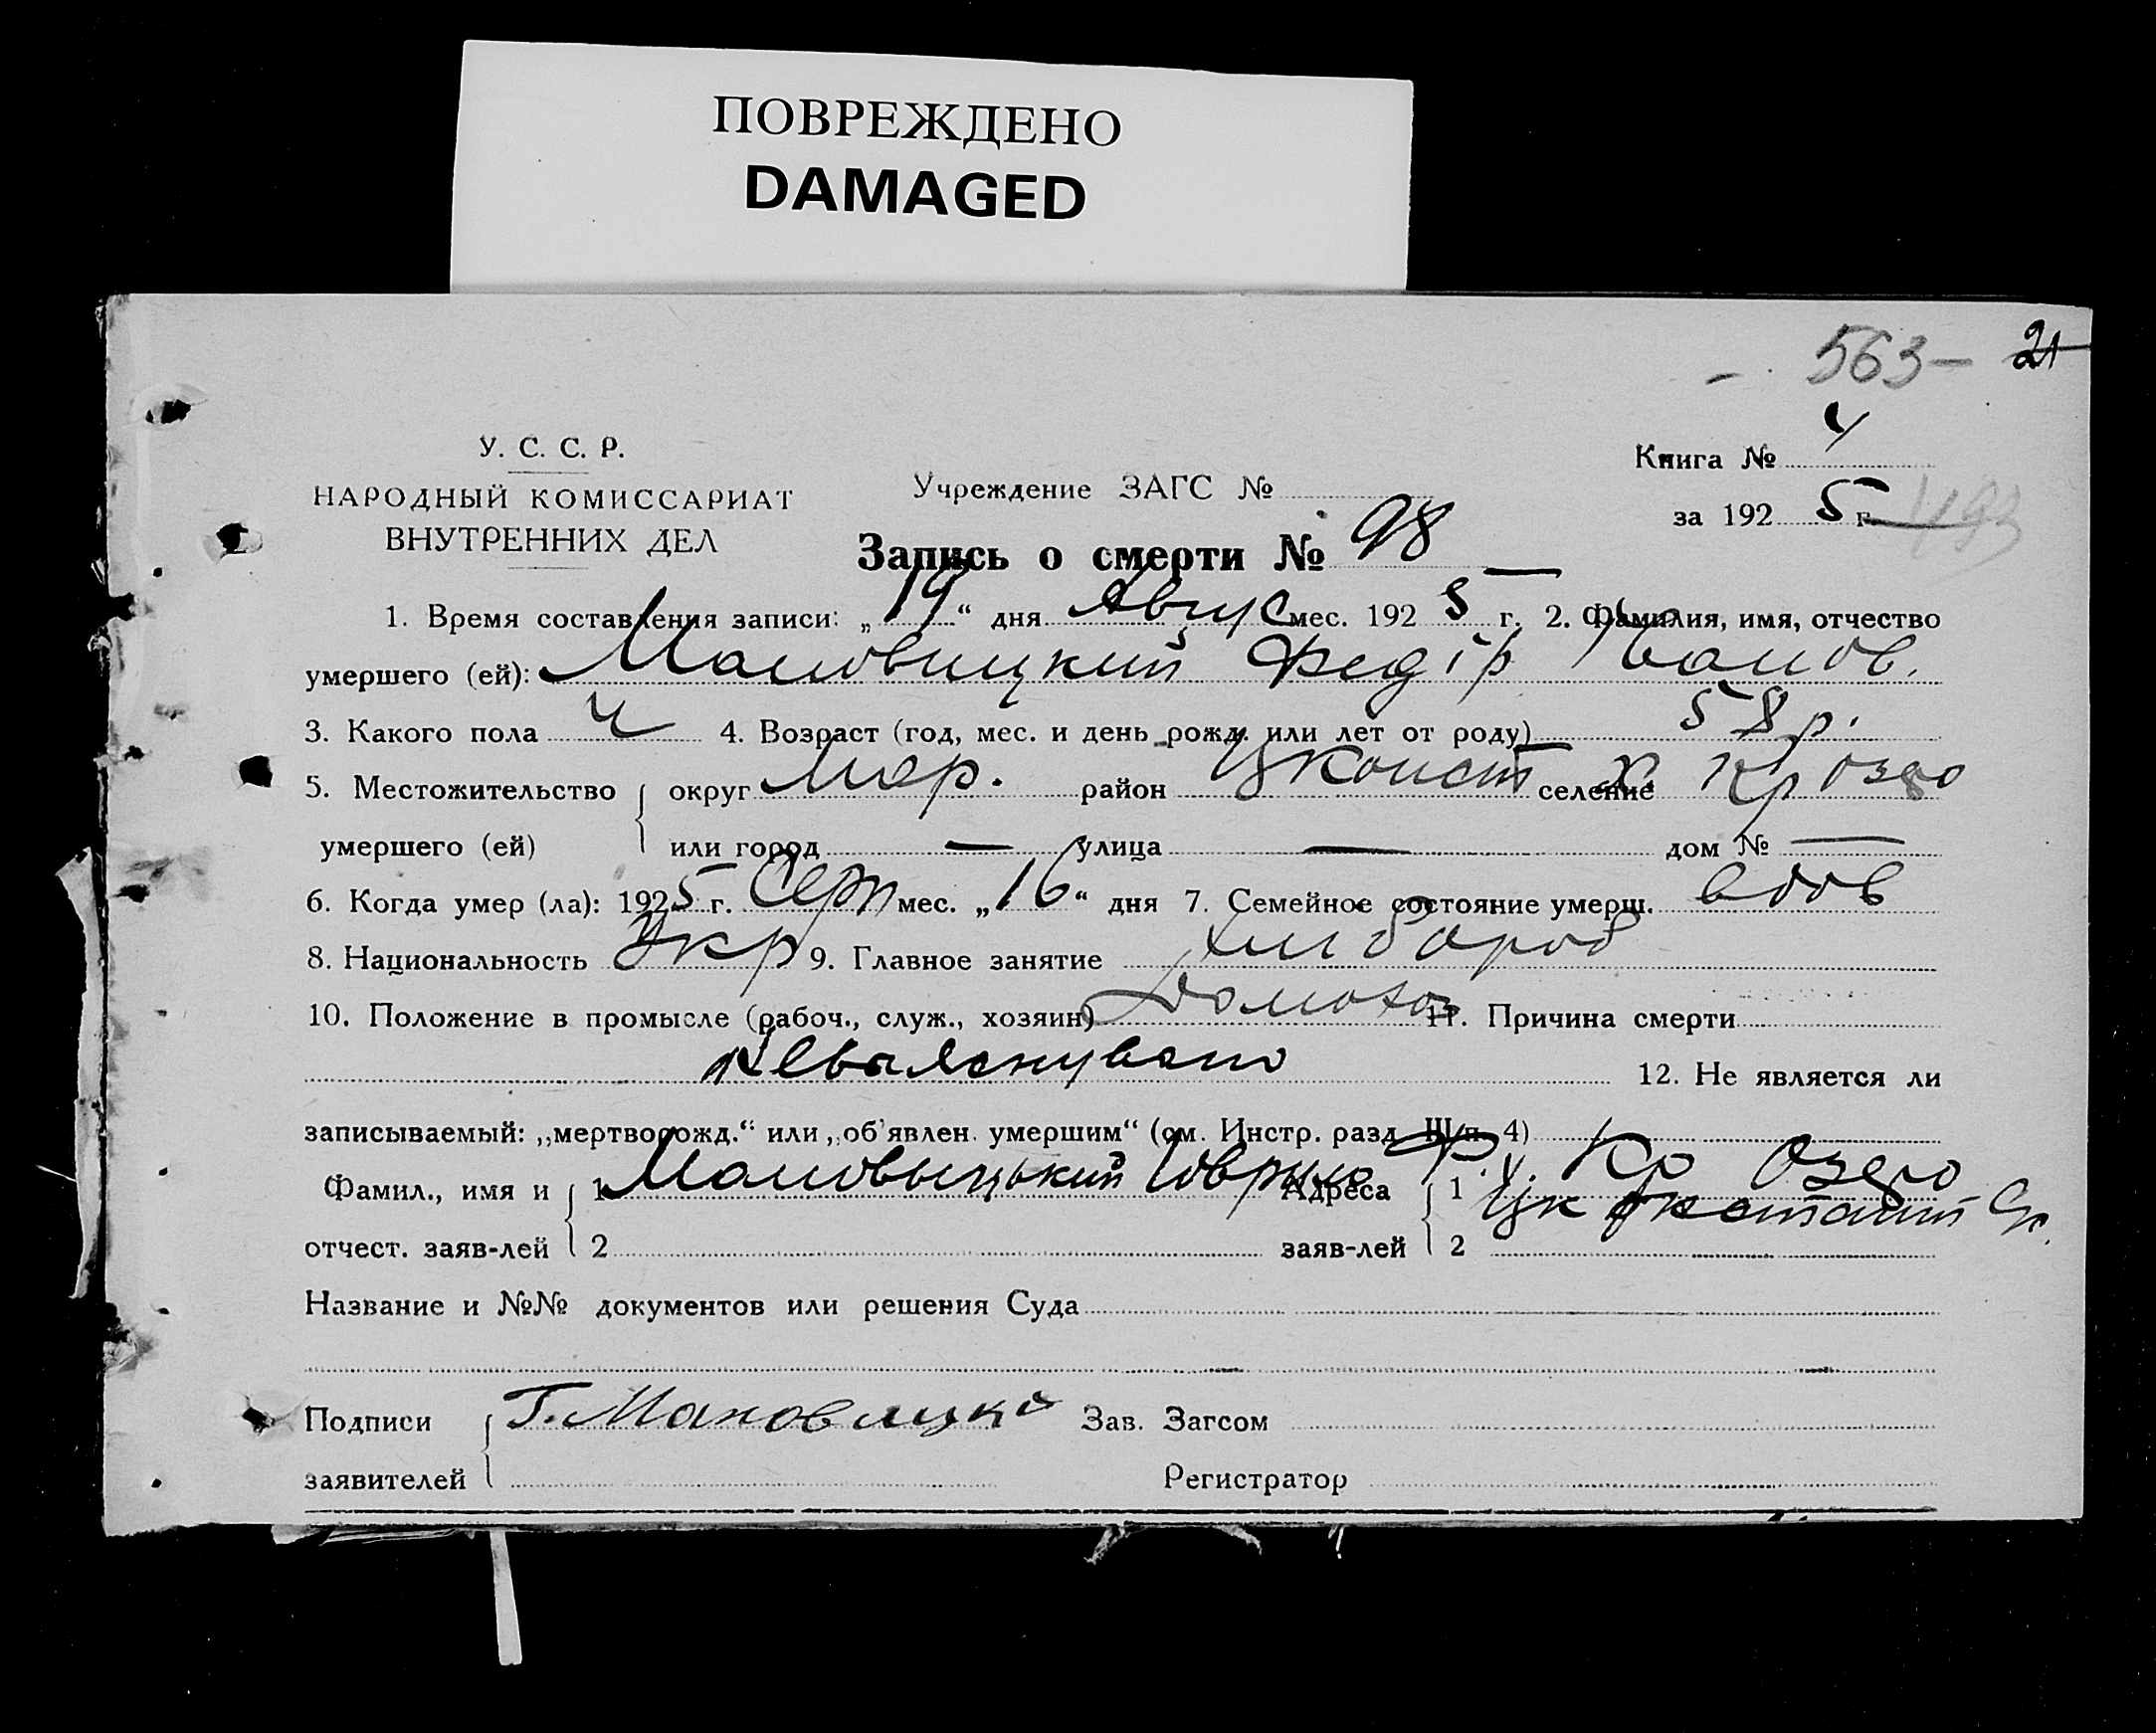 ПОВРЕЖДЕНО
DAMAGED
563— 21
У. С. С. Р.
НАРОДНЫЙ КОМИССАРИАТ
ВНУТРЕННИХ ДЕЛ
Учреждение ЗАГС №
Книга № 4
за 192 5 г. 493
Запись о смерти № 98
1. Время составления записи: „19“ дня Август мес. 192 5 г. 2. Фамилия, имя, отчество
умершего (ей): Мановицкий Федір Іванов.
3. Какого пола ч 4. Возраст (год, мес. и день рожд. или лет от роду) 58 р.
5. Местожительство округ Мар. район Цконст селение х. Кр Озеро
умершего (ей) или город — улица — дом № —
6. Когда умер (ла): 1925 г. Серп мес. „16“ дня 7. Семейное состояние умерш. вдов
8. Национальность Укр 9. Главное занятие хлибороб
10. Положение в промысле (рабоч., служ., хозяин) Домохоз 11. Причина смерти
12. Не является ли
записываемый: „мертворожд.“ или „об'явлен. умершим“ (см. Инстр. разд. III п. 4)
Фамил., имя и 1 Мановыцький Адреса 1 х. Кр Озеро
отчест. заяв-лей 2 заяв-лей 2
Название и №№ документов или решения Суда
Подписи Г. Мановицкй Зав. Загсом
заявителей Регистратор